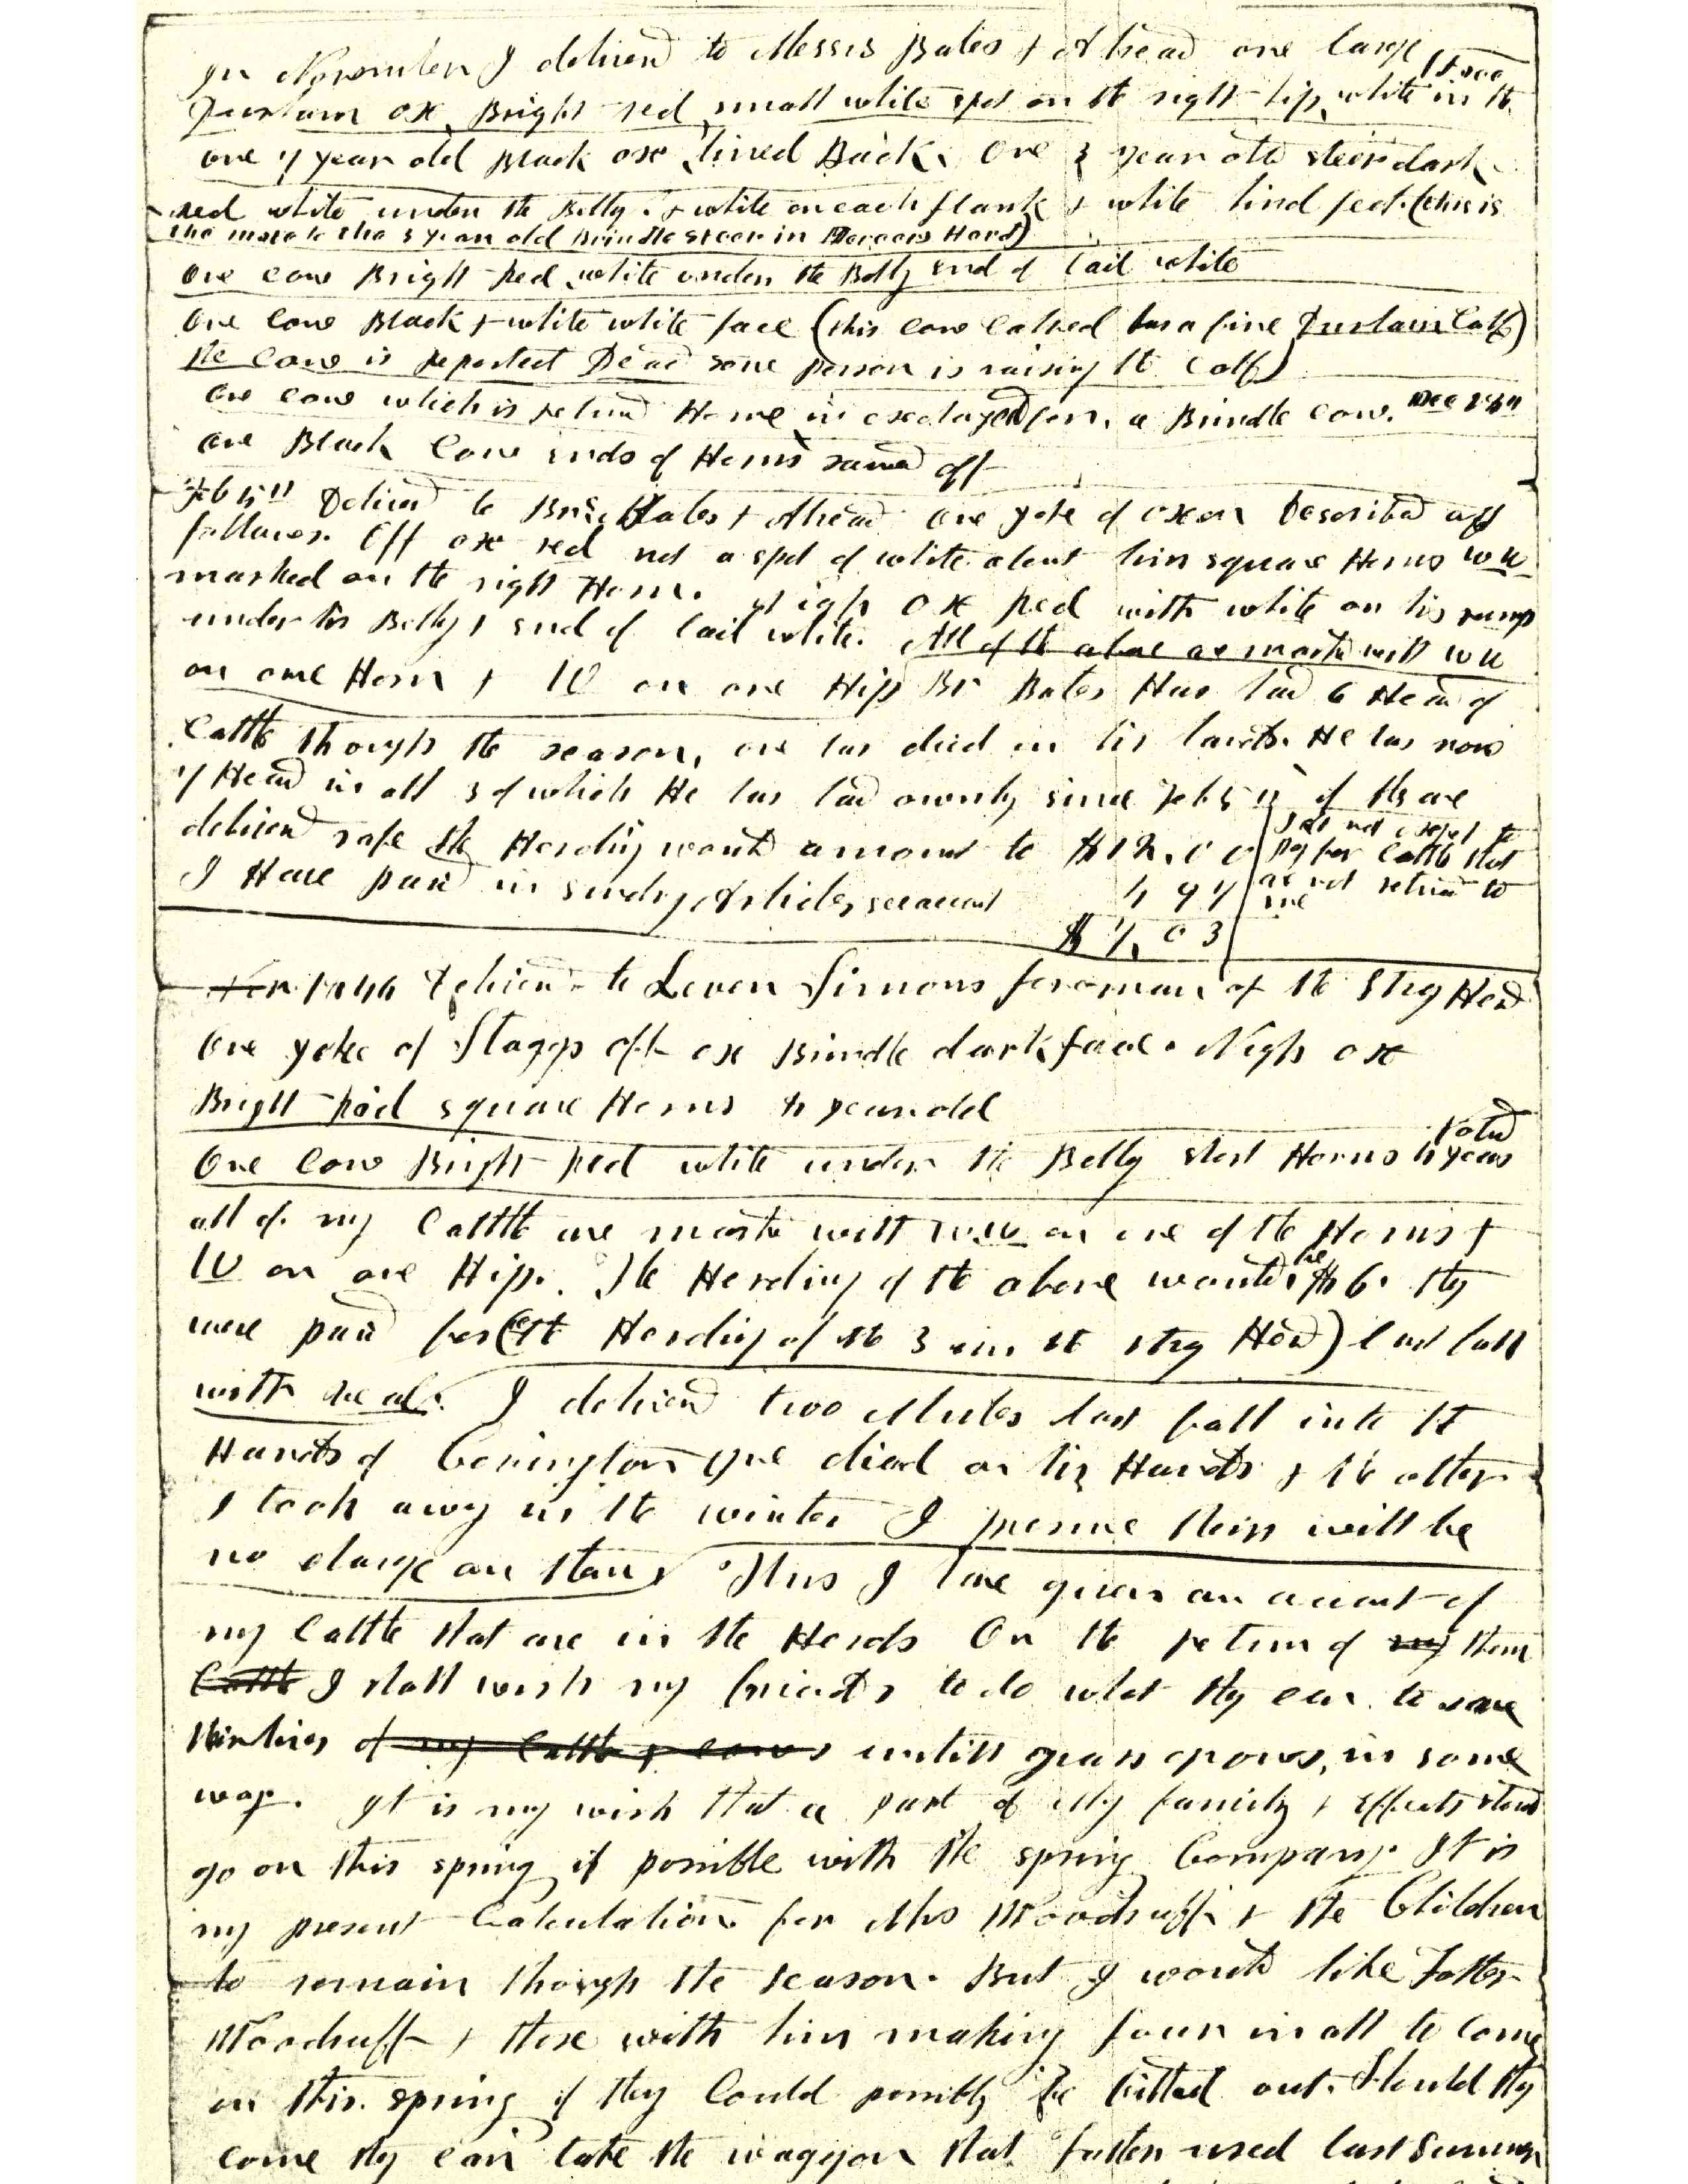 In November I delived to Messrs Bates & Ahead one large
Durham ox Bright red small white spot on the right hip, white in the face
one 7 year old Black oxe lined Back. One 3 year old steer dark
red white under the Belly. & white on each flank & white hind feet. (this is
the mate to the 3 year old Brindle steer in Mercers Herd)
One cow Bright Red white under the Belly end of tail white
One Cow Black & white white face (this cow Calved has a fine Durham Calf)
the Cow is reported Dead some person is raising the Calf)
One cow which is returnd Home in exchanged for, a Brindle cow.
One Black Cow ends of Horns sawed off
Feb 5" Delived to Br Bates & Ahead One yoke of oxen Described as
follows. Off oxe red not a spot of white about him square Horns W W
marked on the right Horn. Nigh ox Red with white on his rump
under his Belly & end of tail white. All of the above are markd with W W
on one Horn & W on one Hip Br Bates Has had 6 Head of
Cattle though the season, one has died in his hands. He has now
7 Head in all 3 of which He has had ownly since Feb 5" if the are
delived safe the Herding would amount to $12.00 I do not expect to
pay for Cattle that
I Have paid in sundry Articles see account 4 97 are not returnd to
me
$7,03
1846 Delived to Leven Simons foreman of the Stry Herd
One yoke of Staggs off ox Brindle dark face. Nigh oxe
Bright Red square Horns year old
One Cow Bright Red white under the Belly short Horns years
all of my Cattle are markd with W.W on one of the Horns &
W on one Hip. The Herding of the above would be $6. they
were paid for (the Herding of the 3 in the stry Herd) last fall
with I delived two Mules last fall into the
Hands of Covington One died on his Hands & the other
I took away in the winter I presume their will be
no charge on them. Thus I have given an account of
my Cattle that are in the Herds On the return of my them
Cattle I shall wish my friends to do what they can to save
their lives of my Cattle & cows untill grass grows, in some
way. It is my wish that a part of My family & Effects should
go on this spring if possible with the spring Company. It is
my present Calculation for Mrs Woodruff & the Children
to remain though the season. But I would like Father
Woodruff & those with him making four in all to Come
on this spring if they Could possibly be fitted out. Should they
come they can take the waggon that father used last Summer